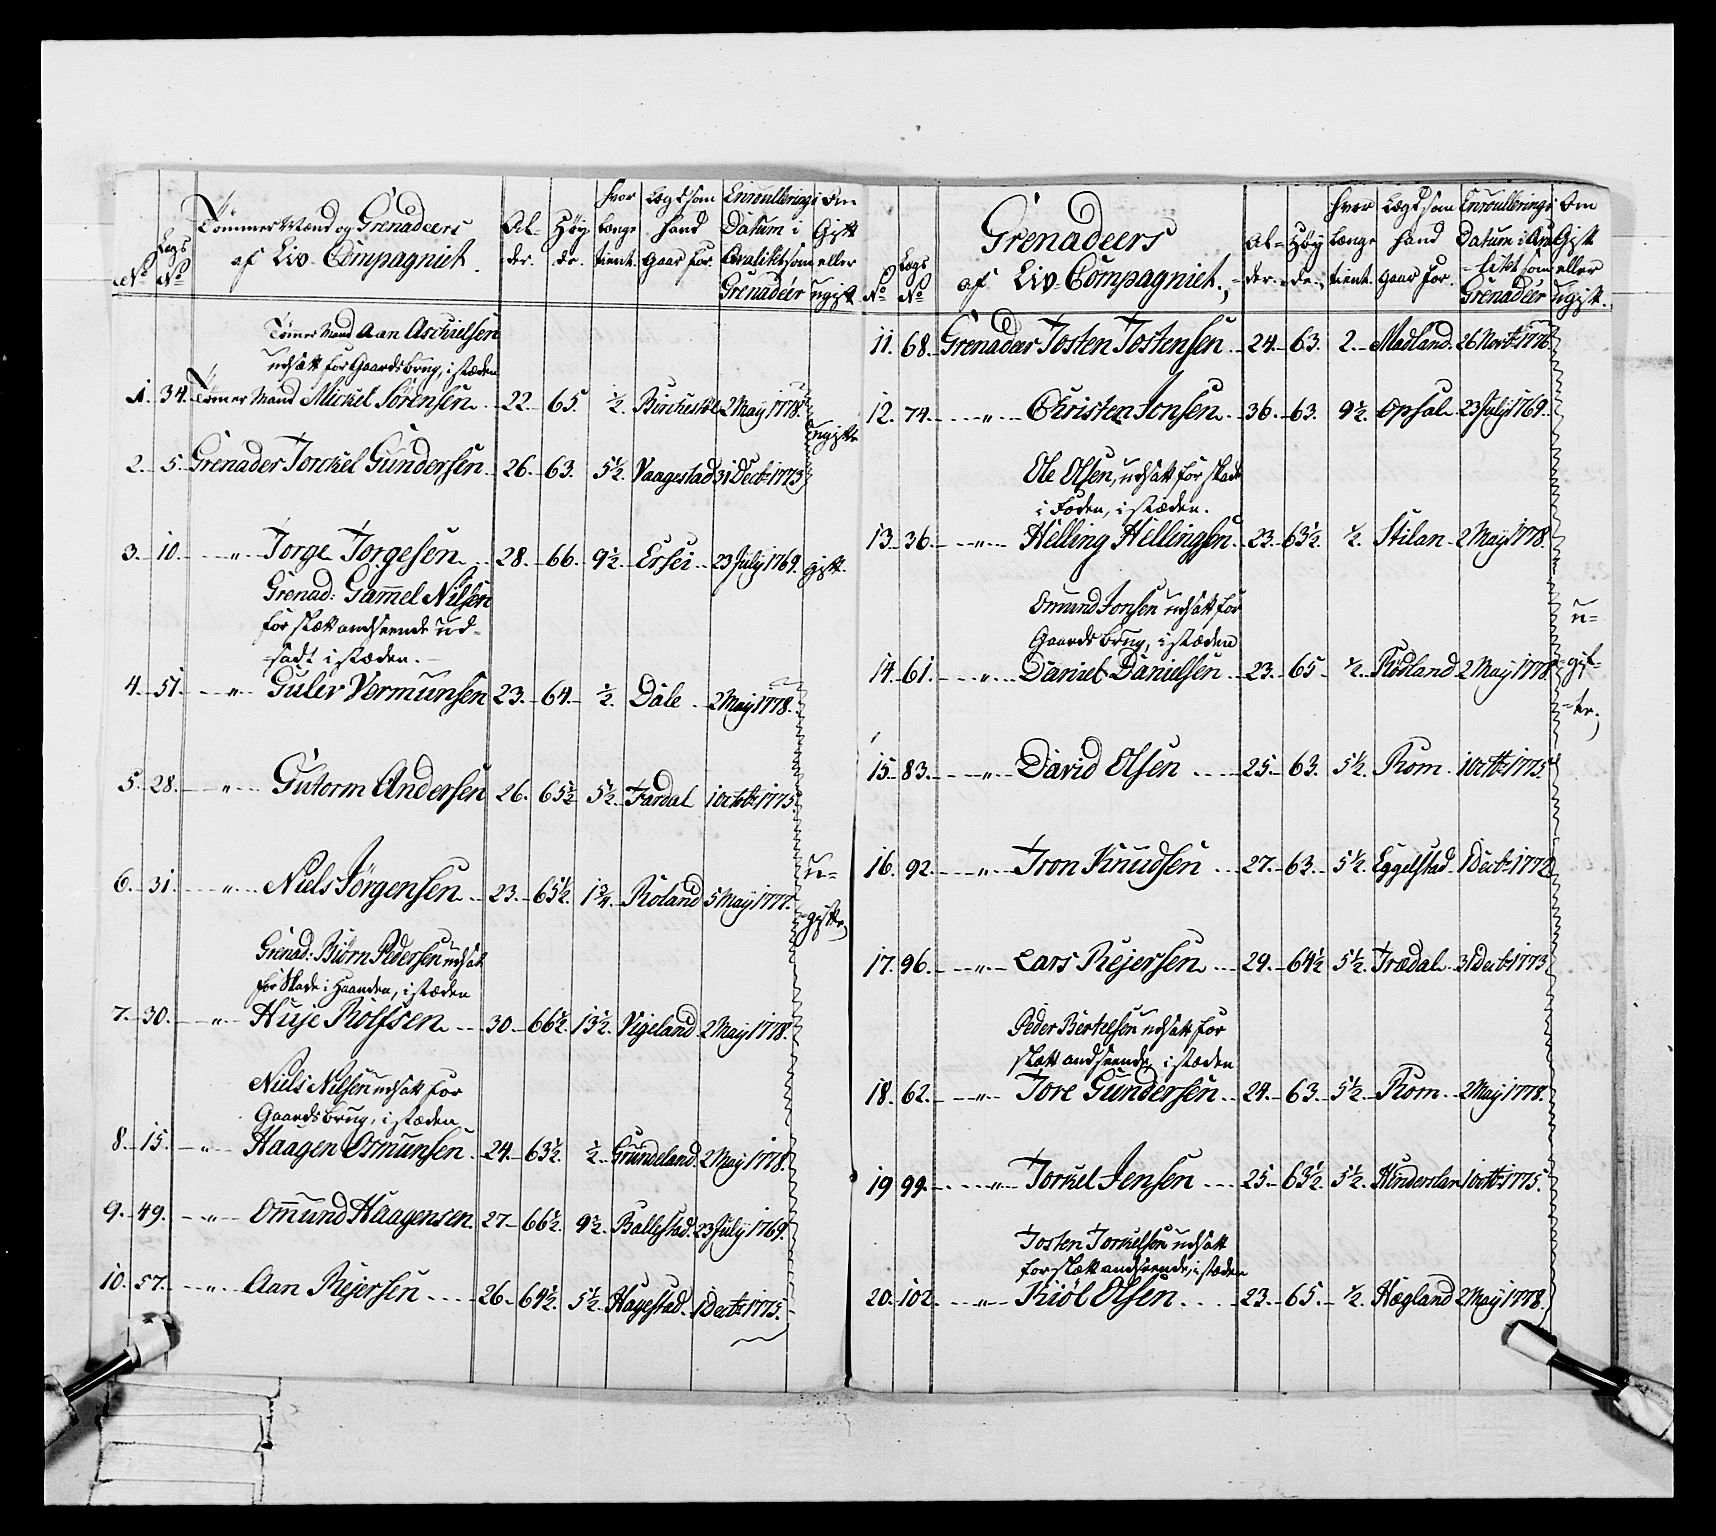 Tømmer Mænd og Grenadeers
af Liv-Compagniet.
No
Legs No
Al-
der.
Høy
de.
hvor
længe
tient.
Lægd som
hand
gaar for.
Enroullerings
Datum i
Qvalité som
Grenadeer
Om
Gift
eller
ugift
Tømmer Mand Aan Aschielsen
udsatt for Gaardsbrug, i stæden
1. 34. Tømmer Mand Mickel Sørensen 22. 65. ½. 2 May 1778.
ugifte
2. 5. Grenader Torckel Gundersen 26. 63. 5½. Vaagestad 31 Decbr 1773
3. 10. " Torge Torgesen 28. 66. 9½ Ersei 23 July 1769. gift.
Grenad: Gammel Nilsen
for slæt andseende ud-
satt i stæden.
4. 51. " Guler Vermunsen 23. 64. ½. Dale 2 May 1778.
5. 28. " Gutorm Andersen 26. 65½ 5½. Fardal 1 Octobr 1775
6. 31. " Niels Jørgensen 23. 65½. 1¾. Roland 5 May 1777.
u-
gifte
Grenad: Biørn Pedersen udsat
for Skade i Haanden, i stæden
7. 30. " Huje Rolfsen 30. 66½. 13½. Vigeland 2 May 1778.
Niels Nilsen udsatt for
Gaardsbrug, i stæden
8. 15. " Haagen Osmunsen 24. 63½. ½. Grundeland 2 May 1778.
9. 49. " Omund Haagensen 27. 66½. 9½. Ballestad. 23 July 1769.
10. 57. " Aan Rejersen 26. 64½. 5½. Hagestad. 1 Decbr 1775.
Grenadeers
af Liv-Compagniet.
No
Legs No
Al-
der.
Høy
de.
hvor
længe
tient.
Lægd som
hand
gaar for.
Enroullerings
Datum i Qva-
litet som
Grenadeer
Om
Gift
eller
ugift.
11. 68. Grenadeer Tosten Tostensen 24. 63. 2. Madland. 26 Novbr 1776
12. 74. " Christen Jonsen 36. 63. 9½. Opsal 23 July 1769.
Ole Olsen, udsatt for skade
i Foden, i stæden.
13. 36. " Helling Hellingsen 23. 63½ ½. Stilan 2 May 1778.
Omund Jonsen udsatt for
Gaardsbrug, i stæden
14. 61. " Daniel Danielsen 23. 65. ½. Rødland 2 May 1778
u-
gif-
te.
15. 83. " David Olsen 25. 63. 5½. Rom. 1 Octbr 1775
16. 92. " Tron Knudsen 27. 63. 5½. Eggelstad 1 Decbr 1772
17. 96. " Lars Rejersen 29. 64½ 5½. Trædal 31 Decbr 1773
Peder Bertelsen udsatt for
slætt andseende, i stæden
18. 62. " Tore Gundersen 24. 63. 5½. Rom. 2 May 1778.
19 99. " Torkel Jensen 25. 63½. 5½. 1 Octbr 1775.
Tosten Torkelsen udsatt
for slætt andseende, i stæden
20. 102. " Kiøl Olsen 23. 65. ½. Hægland 2 May 1778.